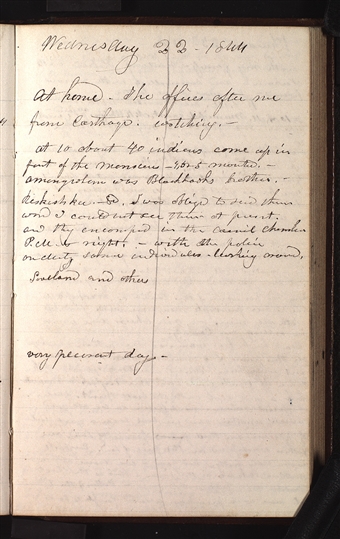 Wednesday 22 - 1844
At home. The officers after me
from Carthage. watching. -
at 10 about 40 indians come up in
front of the mansion -
amongst whom was Blackhawks brother. -
Kiskishkee - &c. I was oblige to send them
word I could not see them at present.
and they encamped in the council chamber
P.M. & night. - with the police
on duty. some individuals lurking around,
Loveland and others
very pleasant day -